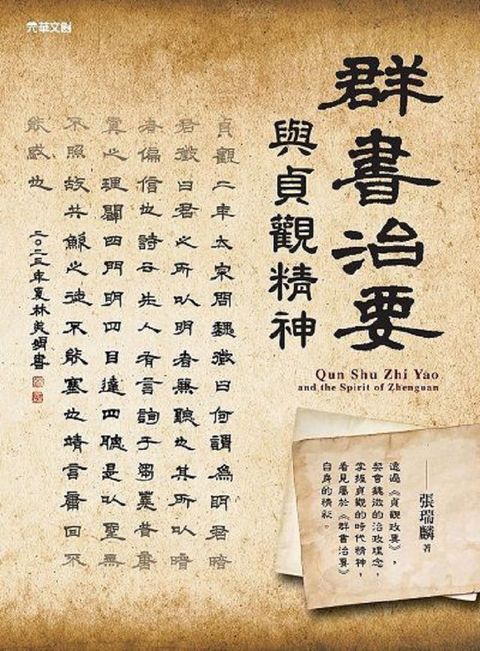 元華文創
群書治要
與貞觀精神
Qun Shu Zhi Yao
and the Spirit of Zhenguan
貞觀二年太宗問魏徵曰何謂為明君暗
君徵曰君之所以明者兼聽也其所以暗
者偏信也詩云先人有言詢于芻蕘昔唐
虞之理闢四門明四目達四聰是以聖無
不照故共鯀之徒不能塞也靖言庸回不
能惑也
二〇二三年夏林美書
——張瑞麟 著
透過《貞觀政要》，
契會魏徵的治政理念，
掌握貞觀的時代精神，
看見屬於《群書治要》
自身的精彩。